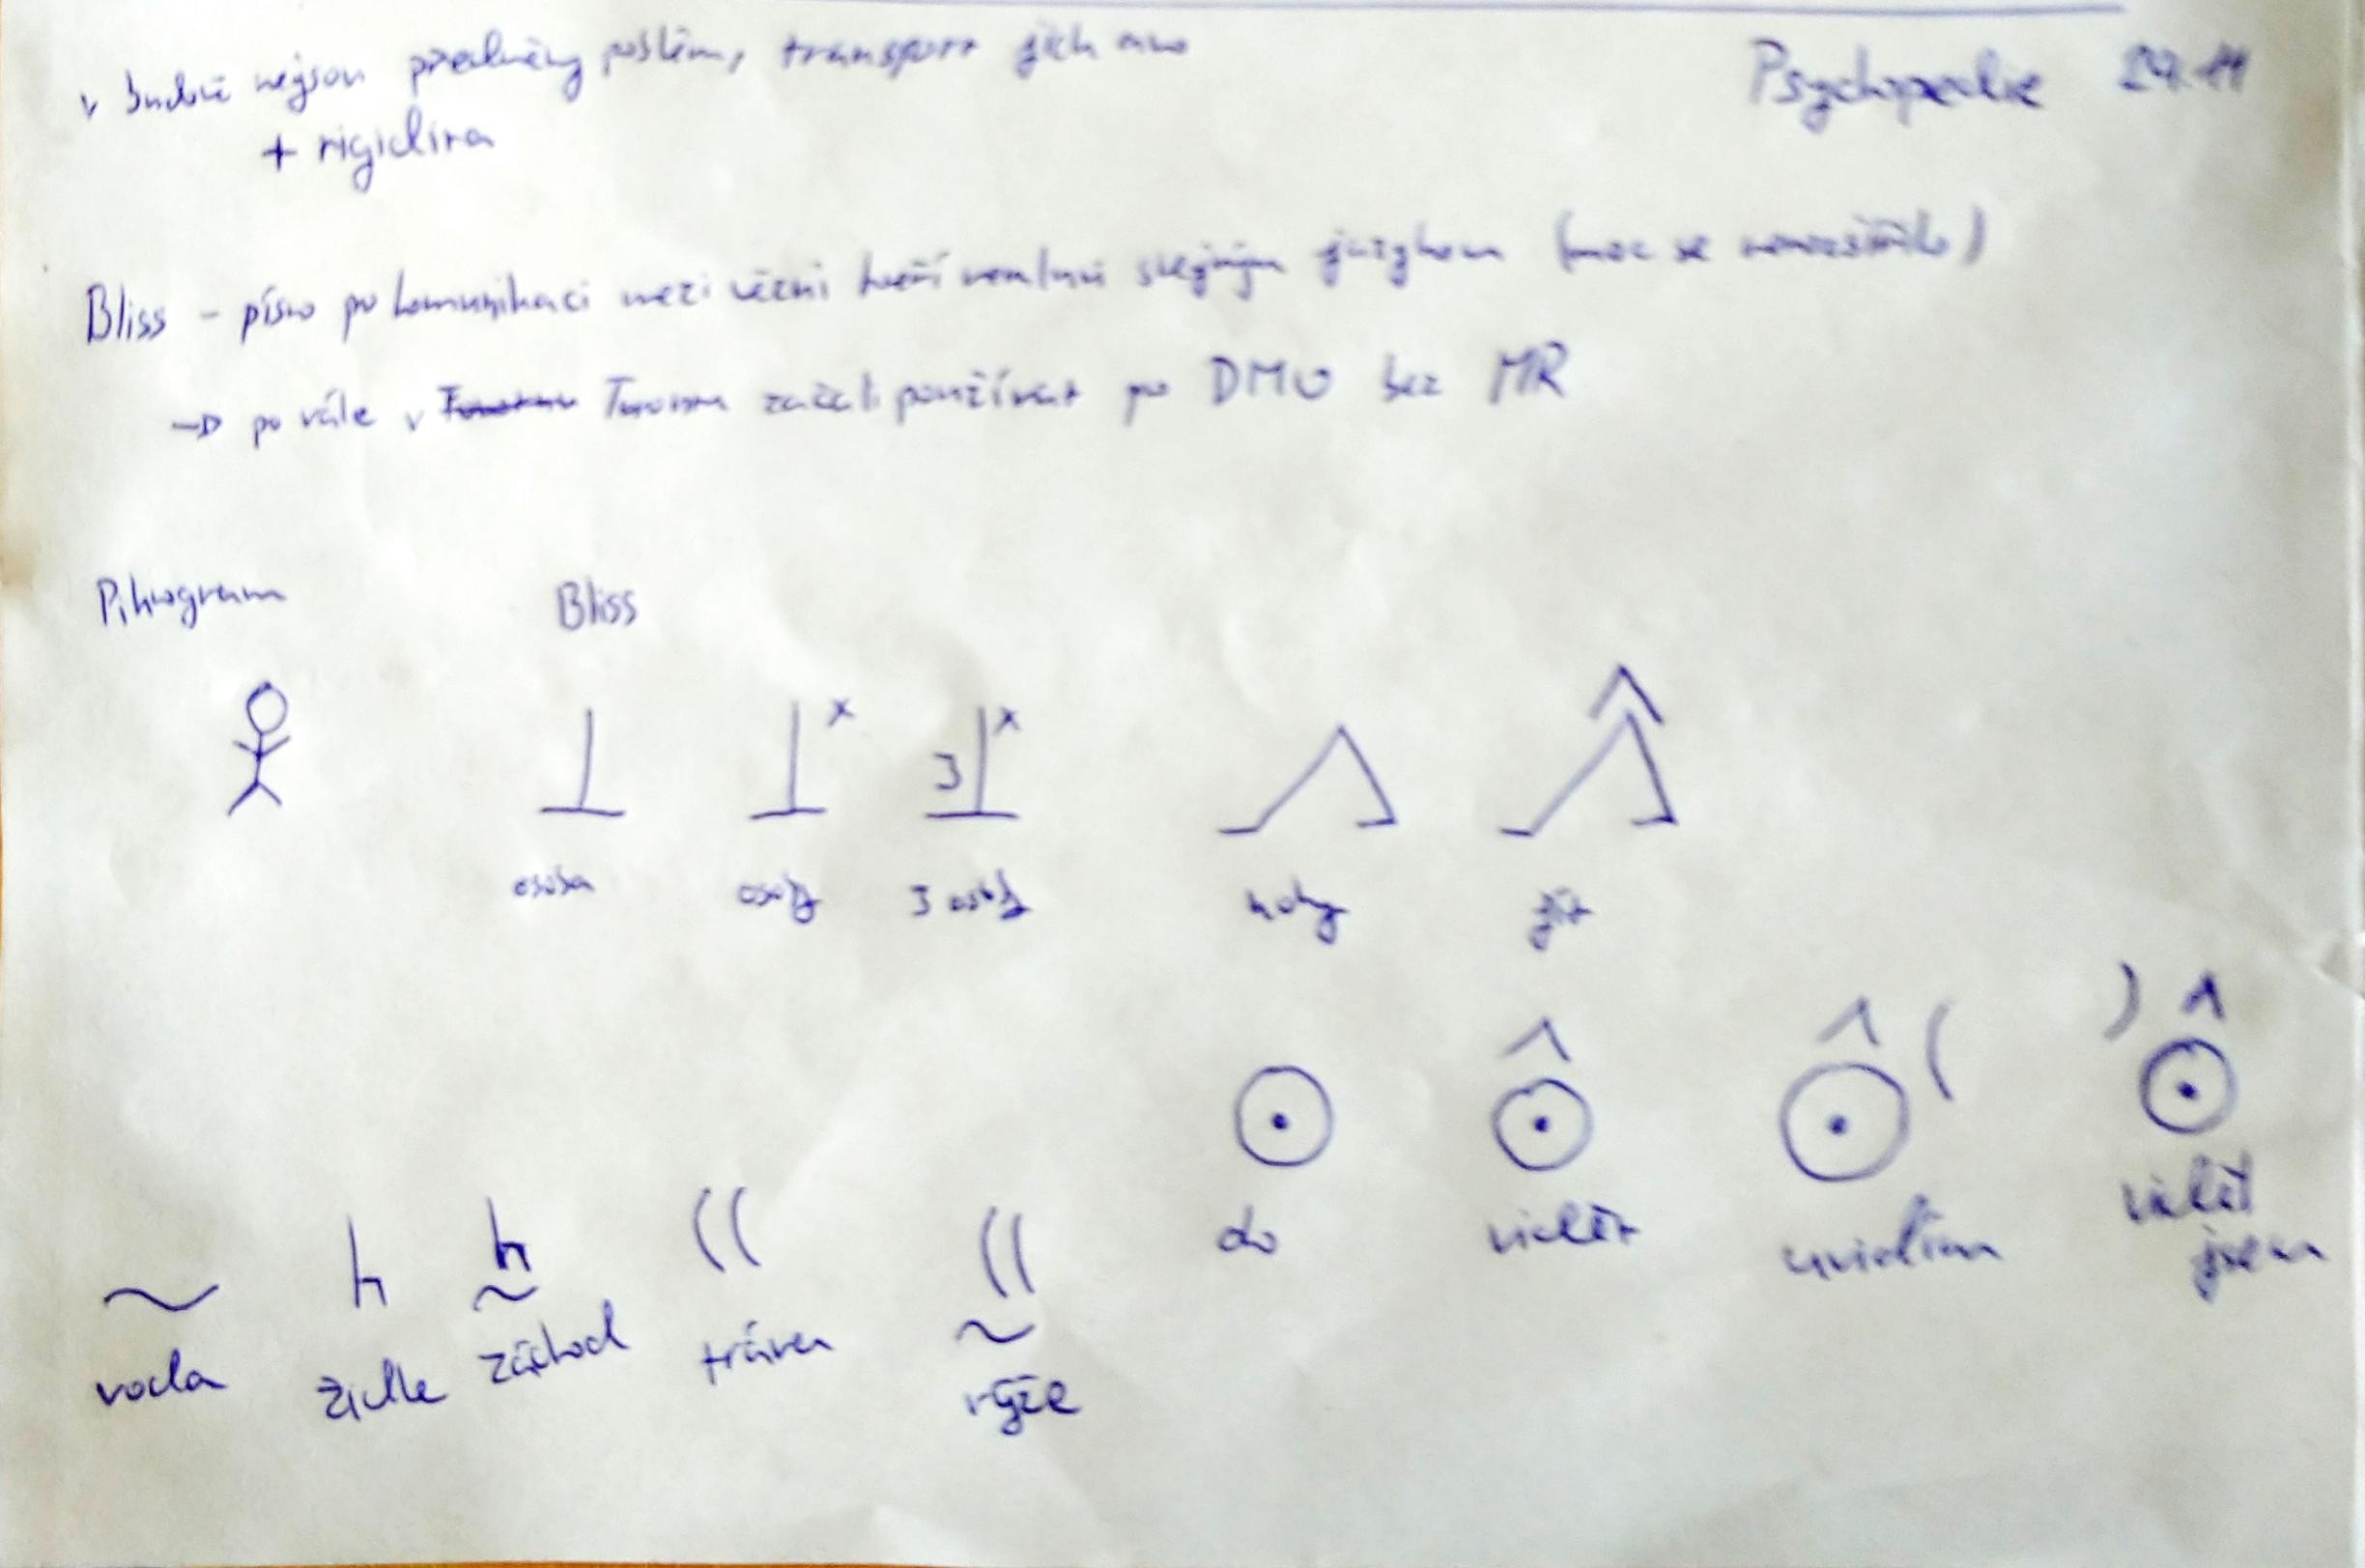 Psychopedie 29.11
v budově nejsou předměty problém, transport jich ano
+ rigidita
Bliss - písmo po komunikaci mezi všemi kteří nemluví stejným jazykem (moc se nerozšířilo)
→ po válce v začali používat po DMO bez MR
Piktogram Bliss
3
osoba osoby 3 osoby nohy jít
oko vidět uvidím viděl jsem
voda židle záchod tráva rýže